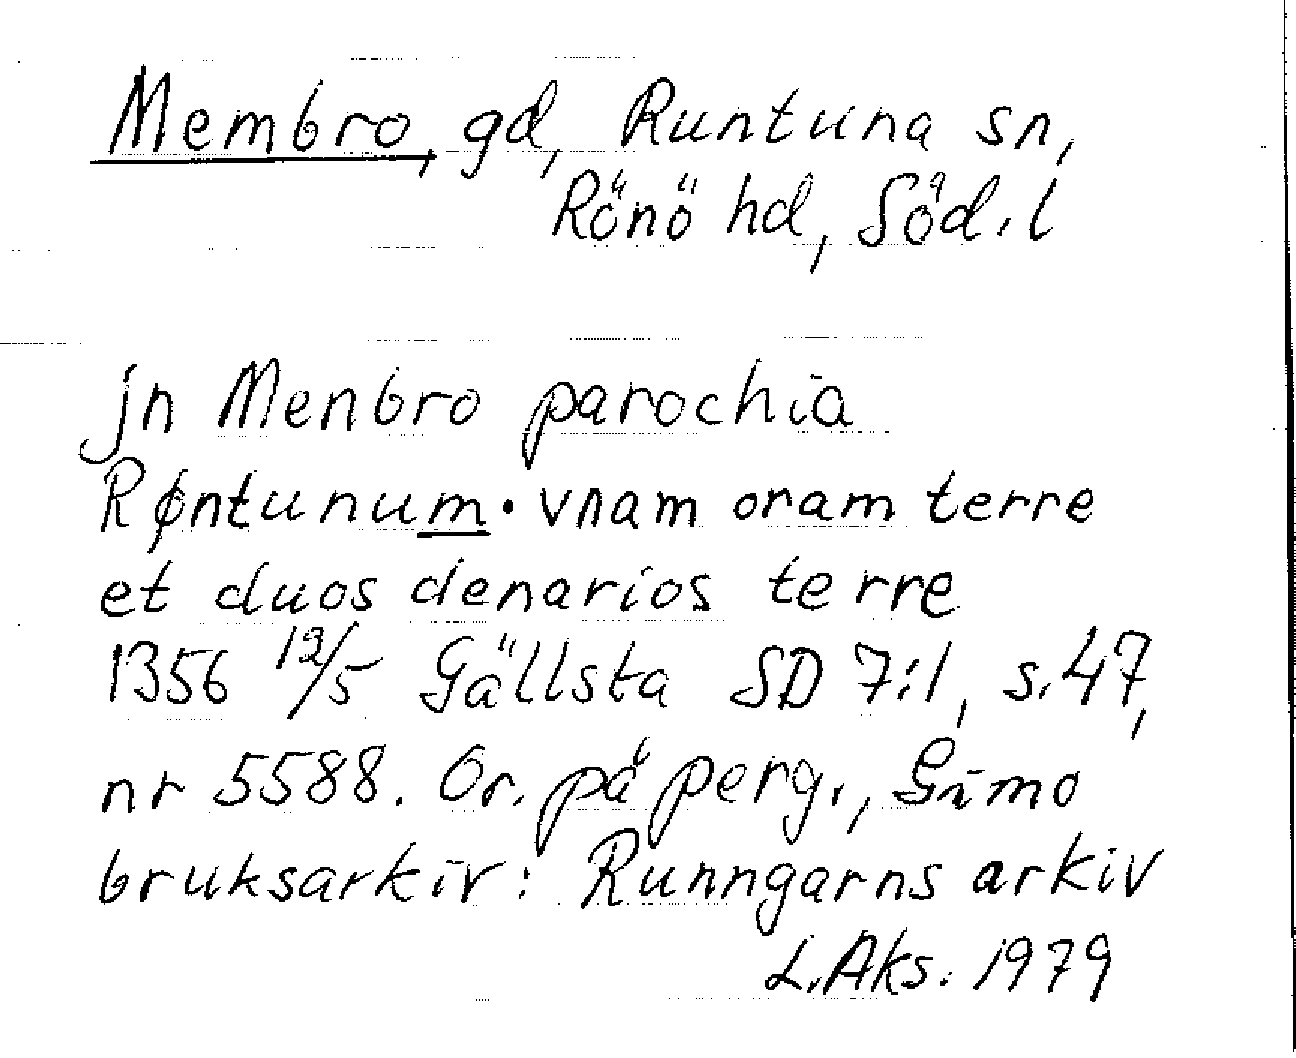 Membro, gd, Runtuna sn,
Rönö hd, Söd. l
jn Menbro parochia
Røntunum · vnam oram terre
et duos denarios terre
1356 12/5 Gällsta SD 7:1, s. 47,
nr 5588. Or. på perg., Gimo
bruksarkiv: Runngarns arkiv
L. Aks. 1979